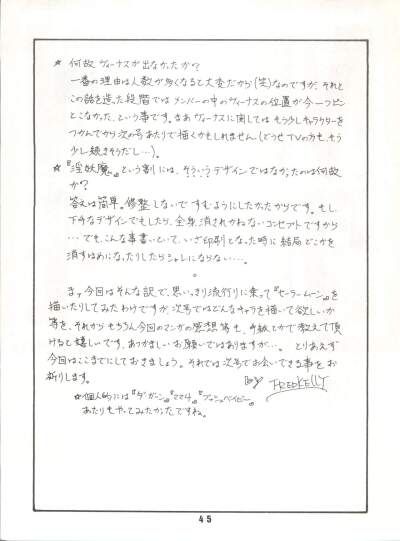 ☆ 何故ヴィーナスが出なかったか？
一番の理由は人数が多くなると大変だから(笑)なのですが、それと
この話を造った段階ではメンバーの中のヴィーナスの位置が今一つピン
とこなかった、という事です。まあヴィーナスに関してはもう少しキャラクターを
つかんでから次の号あたりで描くかもしれません(どうせTVの方も、もう
少し続きそうだし…)。
☆『淫妖魔』という割には、そういうデザインではなかったのは何故
か？
答えは簡単。修整しないですむようにしたかったからです。もし、
下手なデザインでもしたら、全身消されかねないコンセプトですから
…でも、こんな事書いといて、いざ印刷となった時に結局どこかを
消すはめになったりしたらシャレにならない…。
。
まァ今回はそんな訳で、思いっきり流行りに乗って『セーラームーン』を
描いたりしてみたわけですが、次号ではどんなキャラを描いて欲しいか
等を、それからもちろん今回のマンガの感想等も、手紙とかで教えて頂
けると嬉しいです。あつかましいお願いではありますが…。とりあえず
今回はここまでにしておきましょう。それでは次号でお会いできる事をお
祈りします。
by FREDKELLY
☆個人的には『ダ・ガーン』『ママ4』
あたりもやってみたかったですね。
45